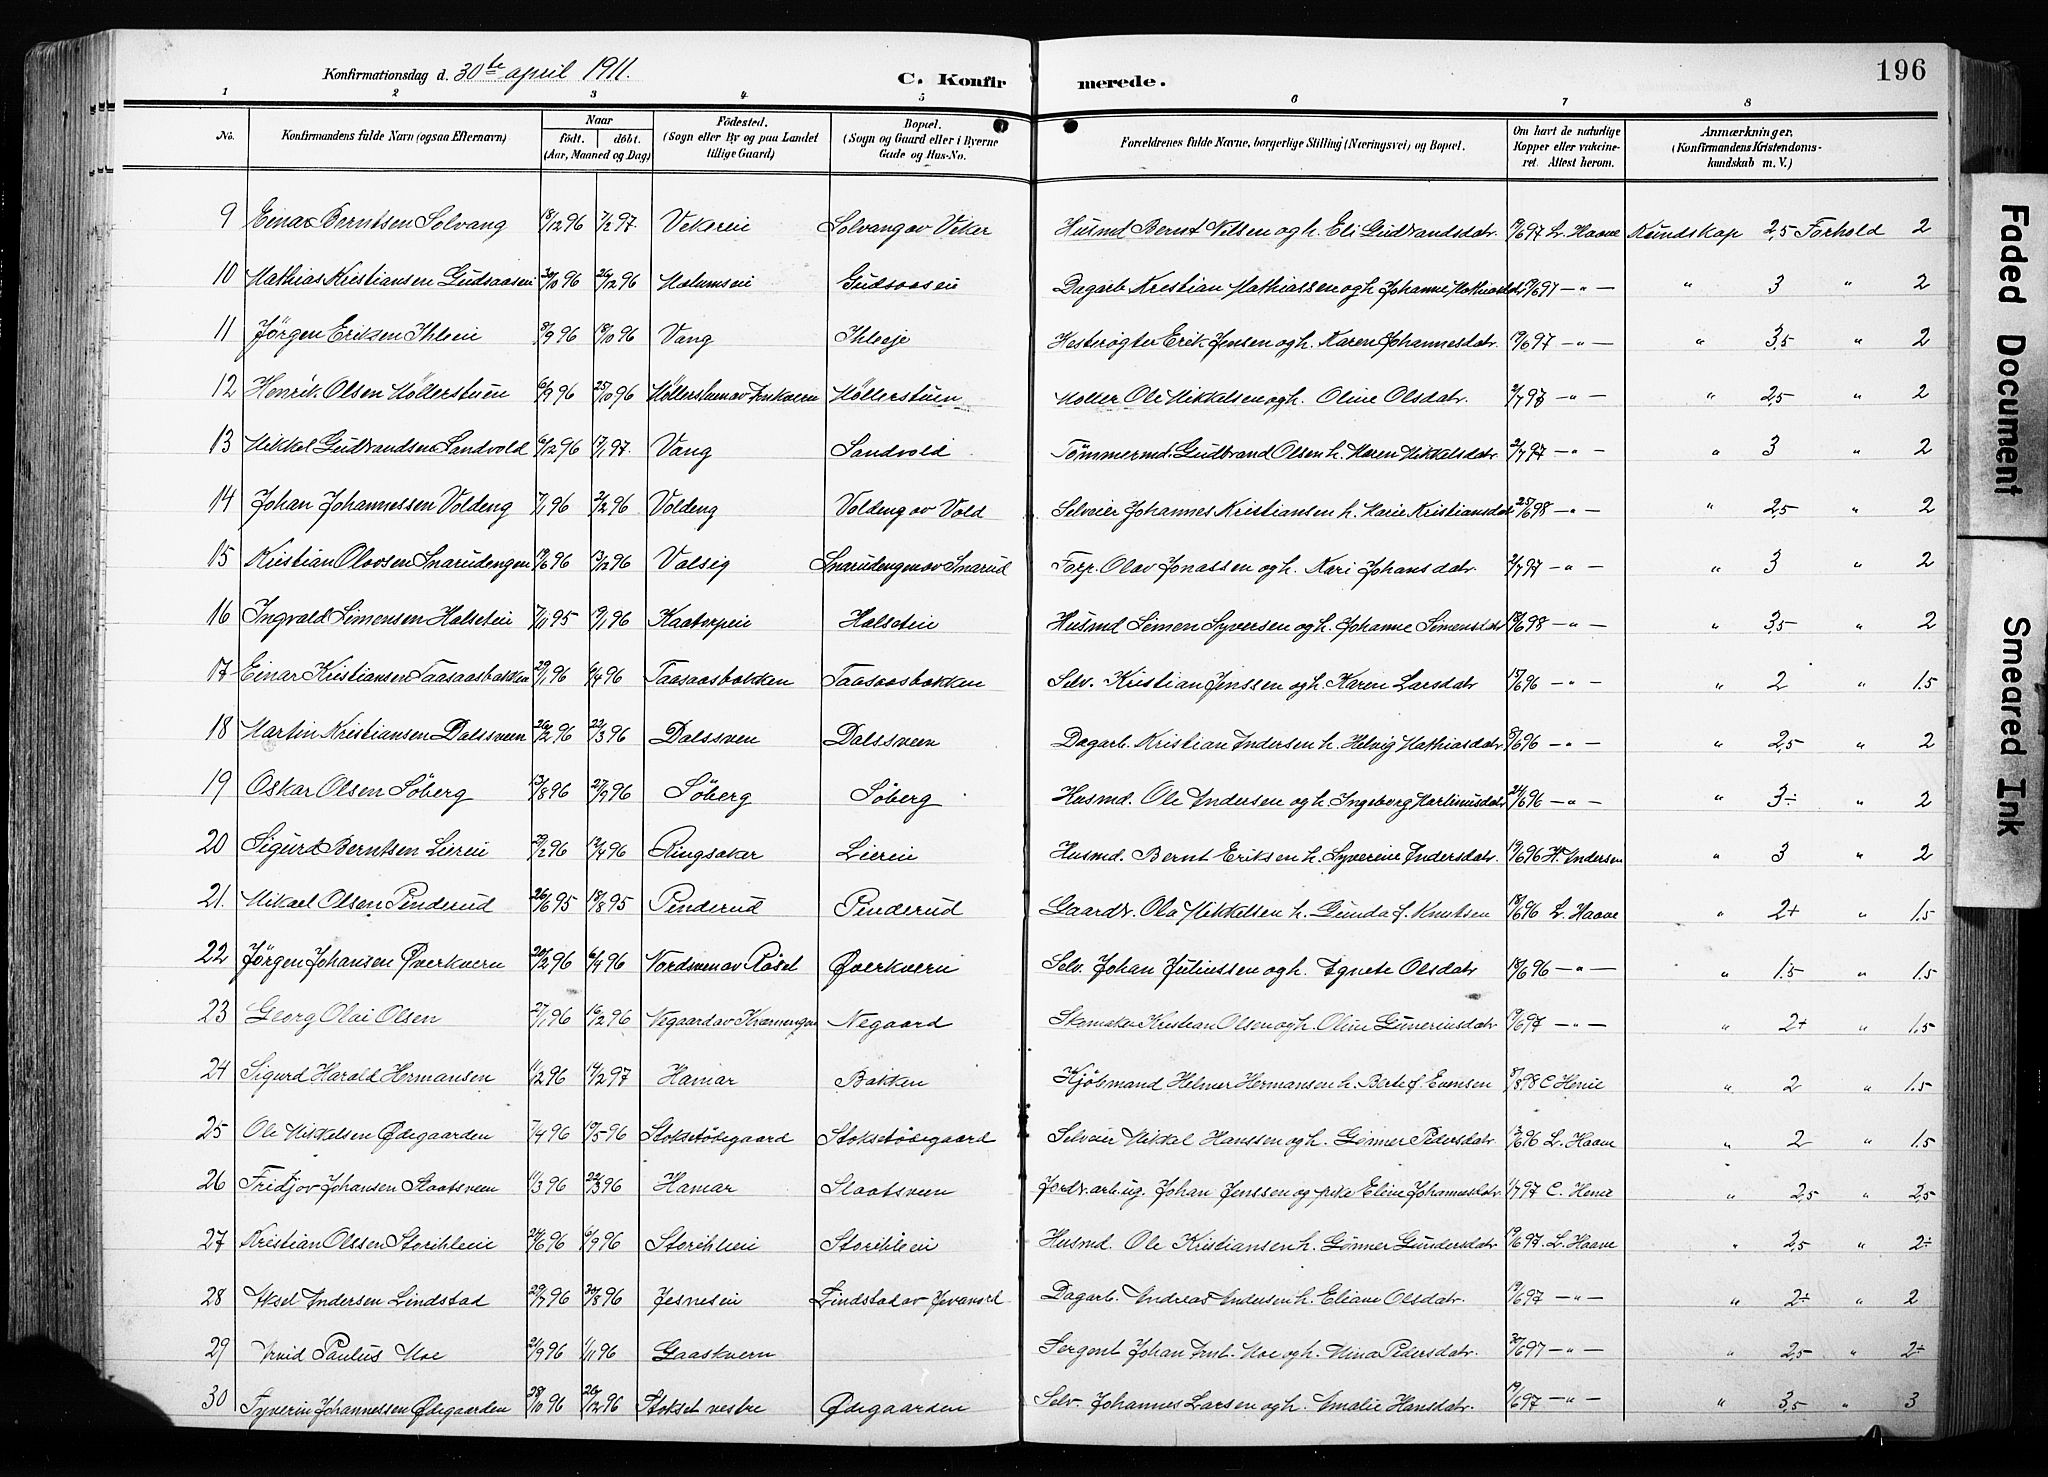 196
Konfirmationsdag d. 30te april 1911.
C. Konfirmerede.
1 2 3 4 5 6 7 8
No. Konfirmandens fulde Navn (ogsaa Efternavn) Naar født. døbt. (Aar, Maaned og Dag) Födested. (Sogn eller By og paa Landet tillige Gaard) Bopæl. (Sogn og Gaard eller i Byerne Gade og Hus-No. Forældrenes fulde Navne, borgerlige Stilling (Næringsvei) og Bopæl. Om havt de naturlige Kopper eller vakcineret. Attest herom. Anmærkninger. (Konfirmandens Kristendomskundskab m. V.)
9 Einar Berntsen Solvang 18/12 96 7/2 97. Vekereie Solvang av Veker Husmd Bernt Nilsen og h. Eli Gudbrandsdatr. 19/6 97 L. Haave Kundskap 2,5 Forhold 2
10 Mathias Kristiansen Gudsaaseie 30/10 96 26/12 96 Molumseie Gudsaaseie Dagarb. Kristian Mathiassen og h Johanne Mathiasdtr 19/6 97 — " — " 3 " 2
11 Jörgen Eriksen Ihleeie 8/9 96 18/10 96 Vang Ihleeje Hesterøgter Erik Jensen og h. Karen Johannesdatr. 19/6 97 — " — " 3,5 " 2
12 Henrik Olsen Möllerstuen 6/9 96 25/10 96 Möllerstuen av Finkvern Möllerstuen Möller Ole Mikkelsen og h. Oline Olsdatr. 2/7 97 — " — " 2,5 " 2
13 Mikkel Gudbrandsen Sandvold 6/12 96 17/1 97. Vang Sandvold Tömmermd. Gudbrand Olsen h. Maren Mikkelsdatr 2/7 97 — " — " 3 " 2
14 Johan Johannessen Voldeng 7/1 96 2/2 96 Voldeng Voldeng av Vold Selveier Johannes Kristiansen h. Marie Kristiansdatr 25/6 98 — " — " 2,5 " 2
15 Kristian Olovsen Snarudengen 19/6 96 13/12 96 Valsig Snarudengen av Snarud Torp. Olav Jonassen og h. Kari Johansdatr. 2/7 97 — " — " 3 " 2
16 Ingvald Simensen Halseteie 7/11 95 19/1 96 Kaatorpeie Halseteie Husmd Simen Syversen og h. Johanne Simensdtr 18/6 98 — " — " 3,5 " 2
17 Einar Kristiansen Taasaasbakken 29/1 96 6/4 96 Taasaasbakken Taasaasbakken Selv. Kristian Jenssen og h. Karen Larsdatr 15/6 96 — " — " 2 " 1.5
18 Martin Kristiansen Dalssveen 26/2 96 22/3 96 Dalssveen Dalssveen Dagarb. Kristian Andersen h. Helvig Mathiasdatr 8/6 96 — " — " 2,5 " 2
19 Oskar Olsen Söberg 13/8 96 27/9 96 Söberg Söberg Husmd. Ole Andersen og h. Ingeborg Martinusdatr 24/6 96 — " — " 3÷ " 2
20 Sigurd Berntsen Liereie 29/2 96 12/4 96 Ringsaker Liereie Husmd. Bernt Eriksen h. Syverine Andersdatr. 19/6 96 H. Andersen " 3 " 2
21. Mikael Olsen Penderud 26/6 95 18/8 95 Penderud Penderud Gaardbr. Ola Mikkelsen h. Gunda f. Knutsen 18/6 96 L. Haave " 2+ " 1.5
22 Jörgen Johansen Øverkvern 20/2 96 6/4 96 Nordsveen av Røsel Øverkvern Selv. Johan Juliussen og h. Agnete Olsdatr 18/6 96 — " — " 1.5 " 1.5
23 Georg Olai Olsen 27/1 96 16/2 96 Negaard av Kværnengen Negaard Skomaker Kristian Olsen og h. Oline Guneriusdatr 19/6 97 — " — " 2+ " 1.5
24 Sigurd Harald Hermansen 11/12 96 14/2 97 Hamar Bakken Kjöbmand Helmer Hermansen h. Berte f. Evensen 8/8 98 C Henie " 2 " 1.5
25 Ole Mikkelsen Ødegaarden 7/4 96 10/5 96 Stoksetödegaard Stoksetödegaard Selveier Mikkel Hanssen og h. Gönner Pedersdatr 13/6 96 L. Haave " 2 " 1.5
26 Fridjov Johansen Staatsveen 11/3 96 22/3 96 Hamar Staatsveen Jordv. arb. ug. Johan Jenssen og pike Eline Johannesdatr 1/7 97 C. Henie " 2,5 " 2,5
27 Kristian Olssen Storihleeie 24/6 96 6/9 96 Storihleeie Storihleeie Husmd. Ole Kristiansen h. Gönner Gundersdatr 19/6 97. L. Haave " 2,5 " 2÷
28 Aksel Andersen Lindstad 29/7 96 30/8 96 Jesneseie Lindstad av Jevanord Dagarb. Andreas Andersen h. Eliane Olsdatr. 19/6 97 — " — " 2÷ " 2
29 Arvid Paulus Moe 21/9 96 1/11 96 Gaaskvern Sergent Johan Ant. Moe og h. Mina Pedersdatr. 30/6 97 — " — " 2,5 " 2÷
30 Syverin Johannessen Ødegaarden 28/10 96 26/12 96 Stokset vestre Ødegaarden Selv. Johannes Larsen og h. Amalie Hansdatr. 19/6 97 — " — " 3,5 " 3
Faded Document
Smeared Ink